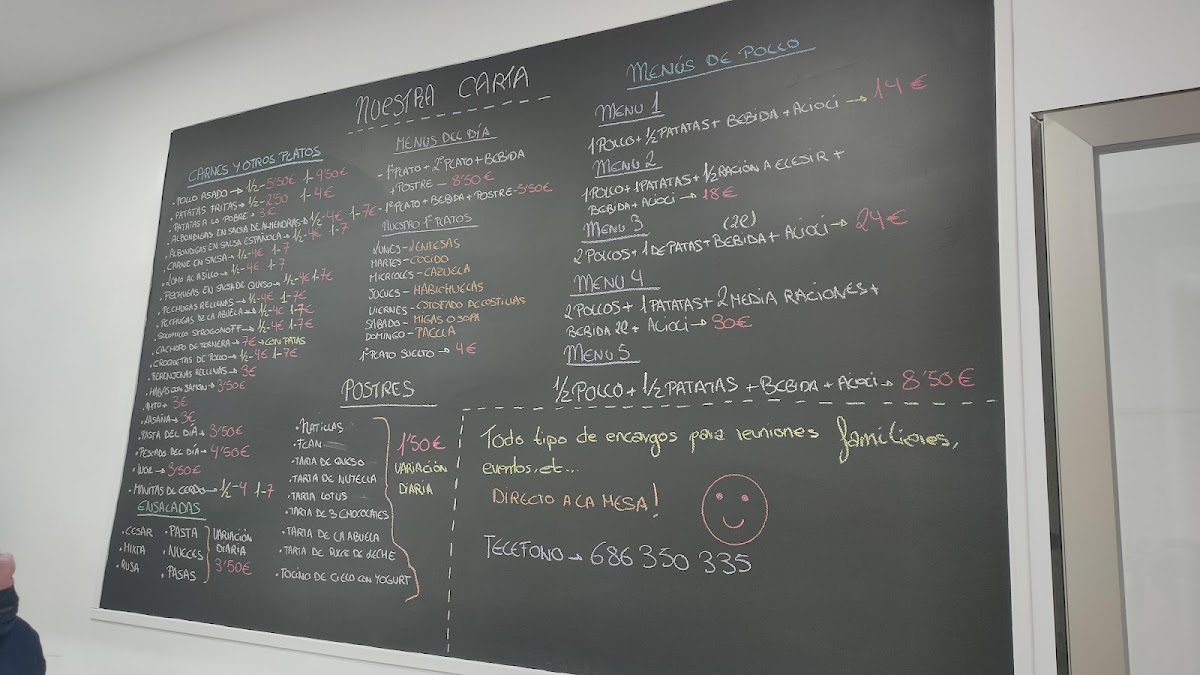 NUESTRA CARTA
CARNES Y OTROS PLATOS
· POLLO ASADO → 1/2 - 5'50€ 1- 9'50€
· PATATAS FRITAS → 1/2 - 2'50 1- 4€
· PATATAS A LO POBRE → 3€
· ALBONDIGAS EN SALSA DE ALMENDRAS → 1/2 - 4€ 1- 7€
· ALBONDIGAS EN SALSA ESPAÑOLA → 1/2 - 4€ 1- 7
· CARNE EN SALSA → 1/2 - 4€ 1- 7
· LOMO AL AJILLO → 1/2 - 4€ 1- 7
· PECHUGAS EN SALSA DE QUESO → 1/2 - 4€ 1- 7€
· PECHUGAS RELLENAS → 1/2 - 4€ 1- 7€
· PECHUGAS DE LA ABUELA → 1/2 - 4€ 1- 7€
· SOLOMILLO STROGONOFF → 1/2 - 4€ 1- 7€
· CACHOPO DE TERNERA → 7€ → CON PATAS
· CROQUETAS DE POLLO → 1/2 - 4€ 1- 7€
· BERENJENAS RELLENAS → 3€
· HABAS CON JAMON → 3'50€
→ 3€
· LASAÑA → 3€
· PASTA DEL DÍA → 3'50€
· PESCADO DEL DÍA → 4'50€
→ 3'50€
· MANITAS DE CERDO → 1/2 - 4 1- 7
ENSALADAS
· CESAR · PASTA
· MIXTA · NUECES
· RUSA · PASAS
VARIACIÓN
DIARIA
3'50€
MENUS DEL DÍA
- 1º PLATO + 2º PLATO + BEBIDA
+ POSTRE — 8'50€
- 1º PLATO + BEBIDA + POSTRE - 5'50€
NUESTRO 1º PLATOS
LUNES - LENTEJAS
MARTES - COCIDO
MIERCOLES - CAZUELA
JUEVES - HABICHUELAS
VIERNES - ESTOFADO DE COSTILLAS
SÁBADO - MIGAS O SOPA
DOMINGO - PAELLA
1º PLATO SUELTO → 4€
POSTRES
· NATILLAS
· FLAN
· TARTA DE QUESO
· TARTA DE NUTELLA
· TARTA LOTUS
· TARTA DE 3 CHOCOLATES
· TARTA DE LA ABUELA
· TARTA DE DULCE DE LECHE
· TOCINO DE CIELO CON YOGURT
1'50€
VARIACIÓN
DIARIA
MENÚS DE POLLO
MENU 1
1 POLLO + 1/2 PATATAS + BEBIDA + ALIOLI → 14€
MENU 2
1 POLLO + 1 PATATAS + 1/2 RACIÓN A ELEGIR +
BEBIDA + ALIOLI → 18€
MENU 3
(2L)
2 POLLOS + 1 DE PATAS + BEBIDA + ALIOLI → 24€
MENU 4
2 POLLOS + 1 PATATAS + 2 MEDIA RACIONES +
BEBIDA 2L + ALIOLI → 30€
MENU 5
1/2 POLLO + 1/2 PATATAS + BEBIDA + ALIOLI → 8'50€
Todo tipo de encargos para reuniones familiares,
eventos, etc...
DIRECTO A LA MESA!
TELEFONO → 686 350 335